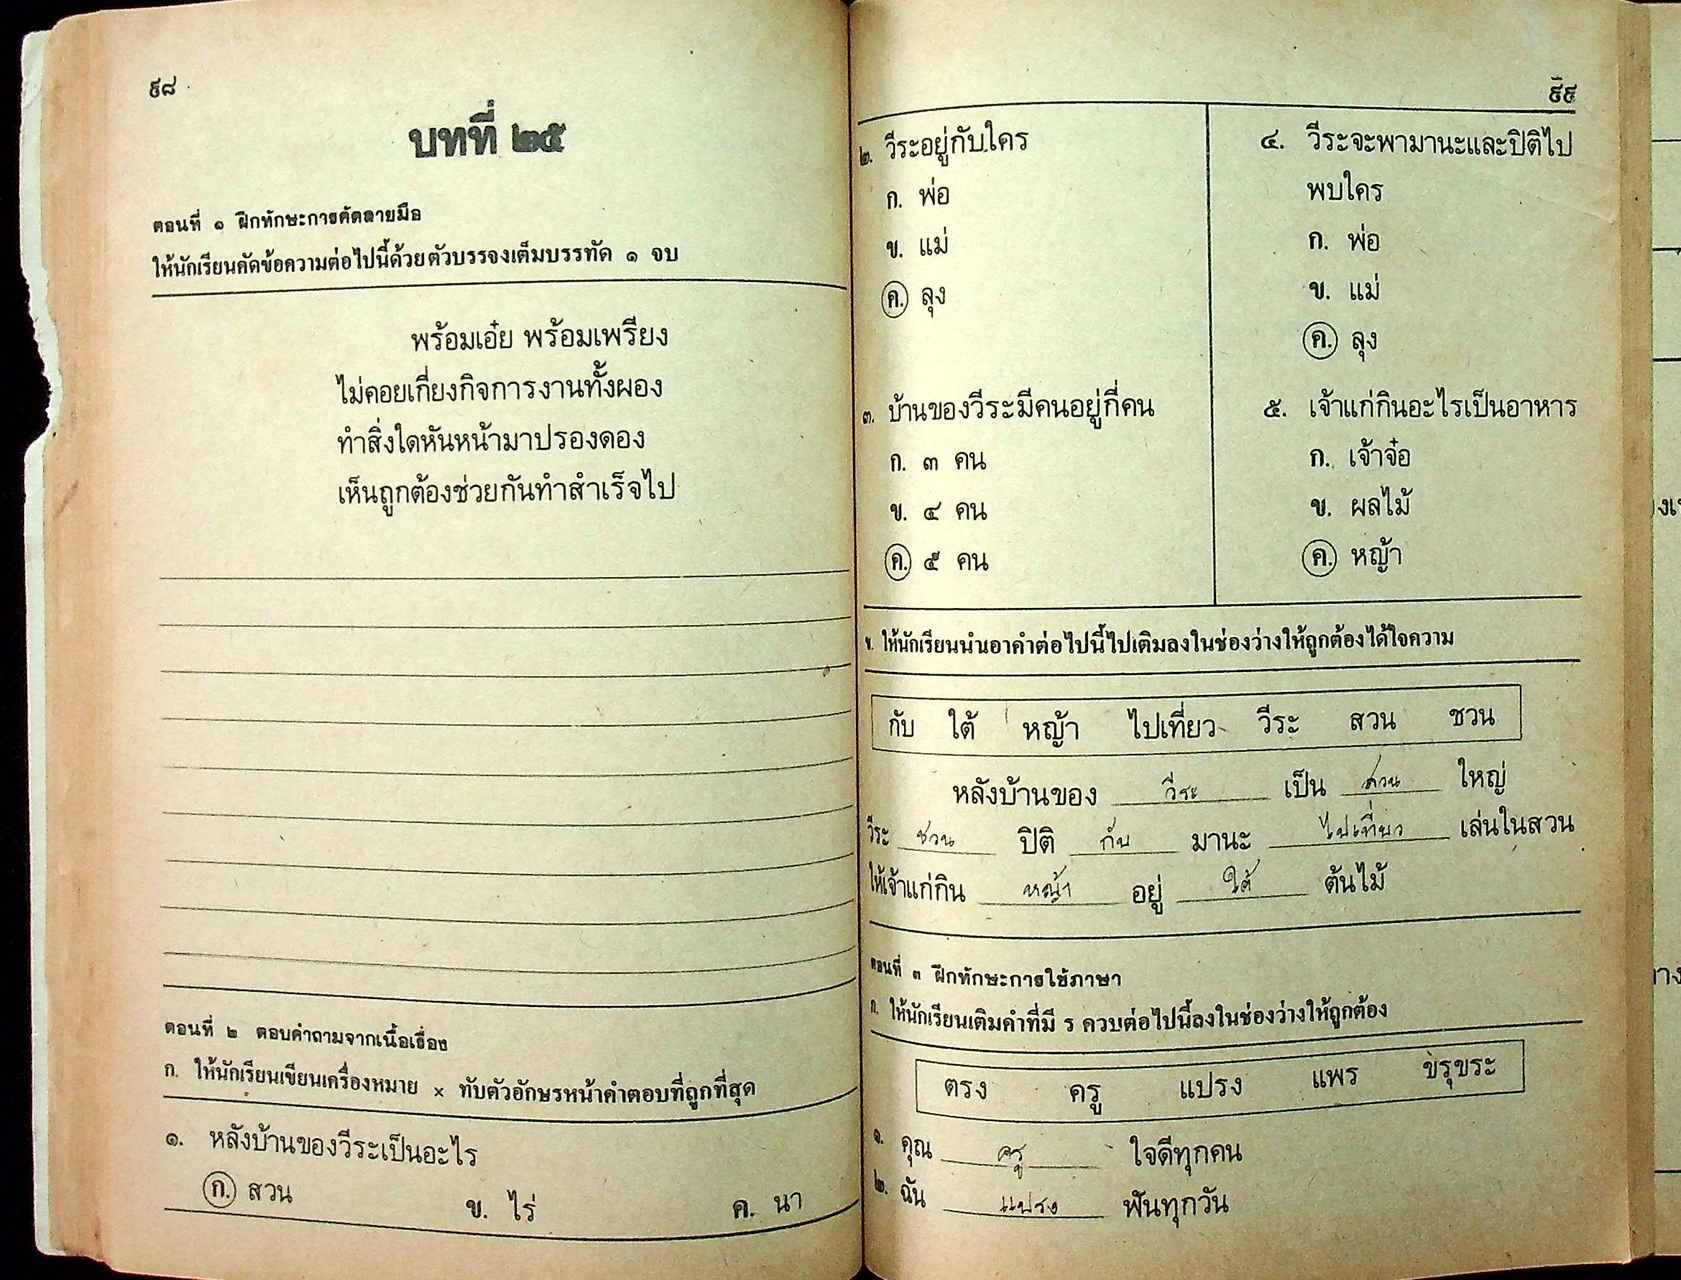 ๙๘
บทที่ ๒๕
ตอนที่ ๑ ฝึกทักษะการคัดลายมือ
ให้นักเรียนคัดข้อความต่อไปนี้ด้วยตัวบรรจงเต็มบรรทัด ๑ จบ
พร้อมเอ๋ย พร้อมเพรียง
ไม่คอยเกี่ยงกิจการงานทั้งผอง
ทำสิ่งใดหันหน้ามาปรองดอง
เห็นถูกต้องช่วยกันทำสำเร็จไป
ตอนที่ ๒ ตอบคำถามจากเนื้อเรื่อง
ก. ให้นักเรียนเขียนเครื่องหมาย × ทับตัวอักษรหน้าคำตอบที่ถูกที่สุด
๑. หลังบ้านของวีระเป็นอะไร
ก. สวน ข. ไร่ ค. นา
๙๙
๒. วีระอยู่กับใคร
ก. พ่อ
ข. แม่
ค. ลุง
๓. บ้านของวีระมีคนอยู่กี่คน
ก. ๓ คน
ข. ๔ คน
ค. ๕ คน
๔. วีระจะพามานะและปิติไป
พบใคร
ก. พ่อ
ข. แม่
ค. ลุง
๕. เจ้าแก่กินอะไรเป็นอาหาร
ก. เจ้าจ๋อ
ข. ผลไม้
ค. หญ้า
ข. ให้นักเรียนนำเอาคำต่อไปนี้ไปเติมลงในช่องว่างให้ถูกต้องได้ใจความ
กับ ใต้ หญ้า ไปเที่ยว วีระ สวน ชวน
หลังบ้านของ วีระ เป็น สวน ใหญ่
วีระ ชวน ปิติ กับ มานะ ไปเที่ยว เล่นในสวน
ให้เจ้าแก่กิน หญ้า อยู่ ใต้ ต้นไม้
ตอนที่ ๓ ฝึกทักษะการใช้ภาษา
ก. ให้นักเรียนเติมคำที่มี ร ควบต่อไปนี้ลงในช่องว่างให้ถูกต้อง
ตรง ครู แปรง แพร ขรุขระ
๑. คุณ ครู ใจดีทุกคน
๒. ฉัน แปรง ฟันทุกวัน